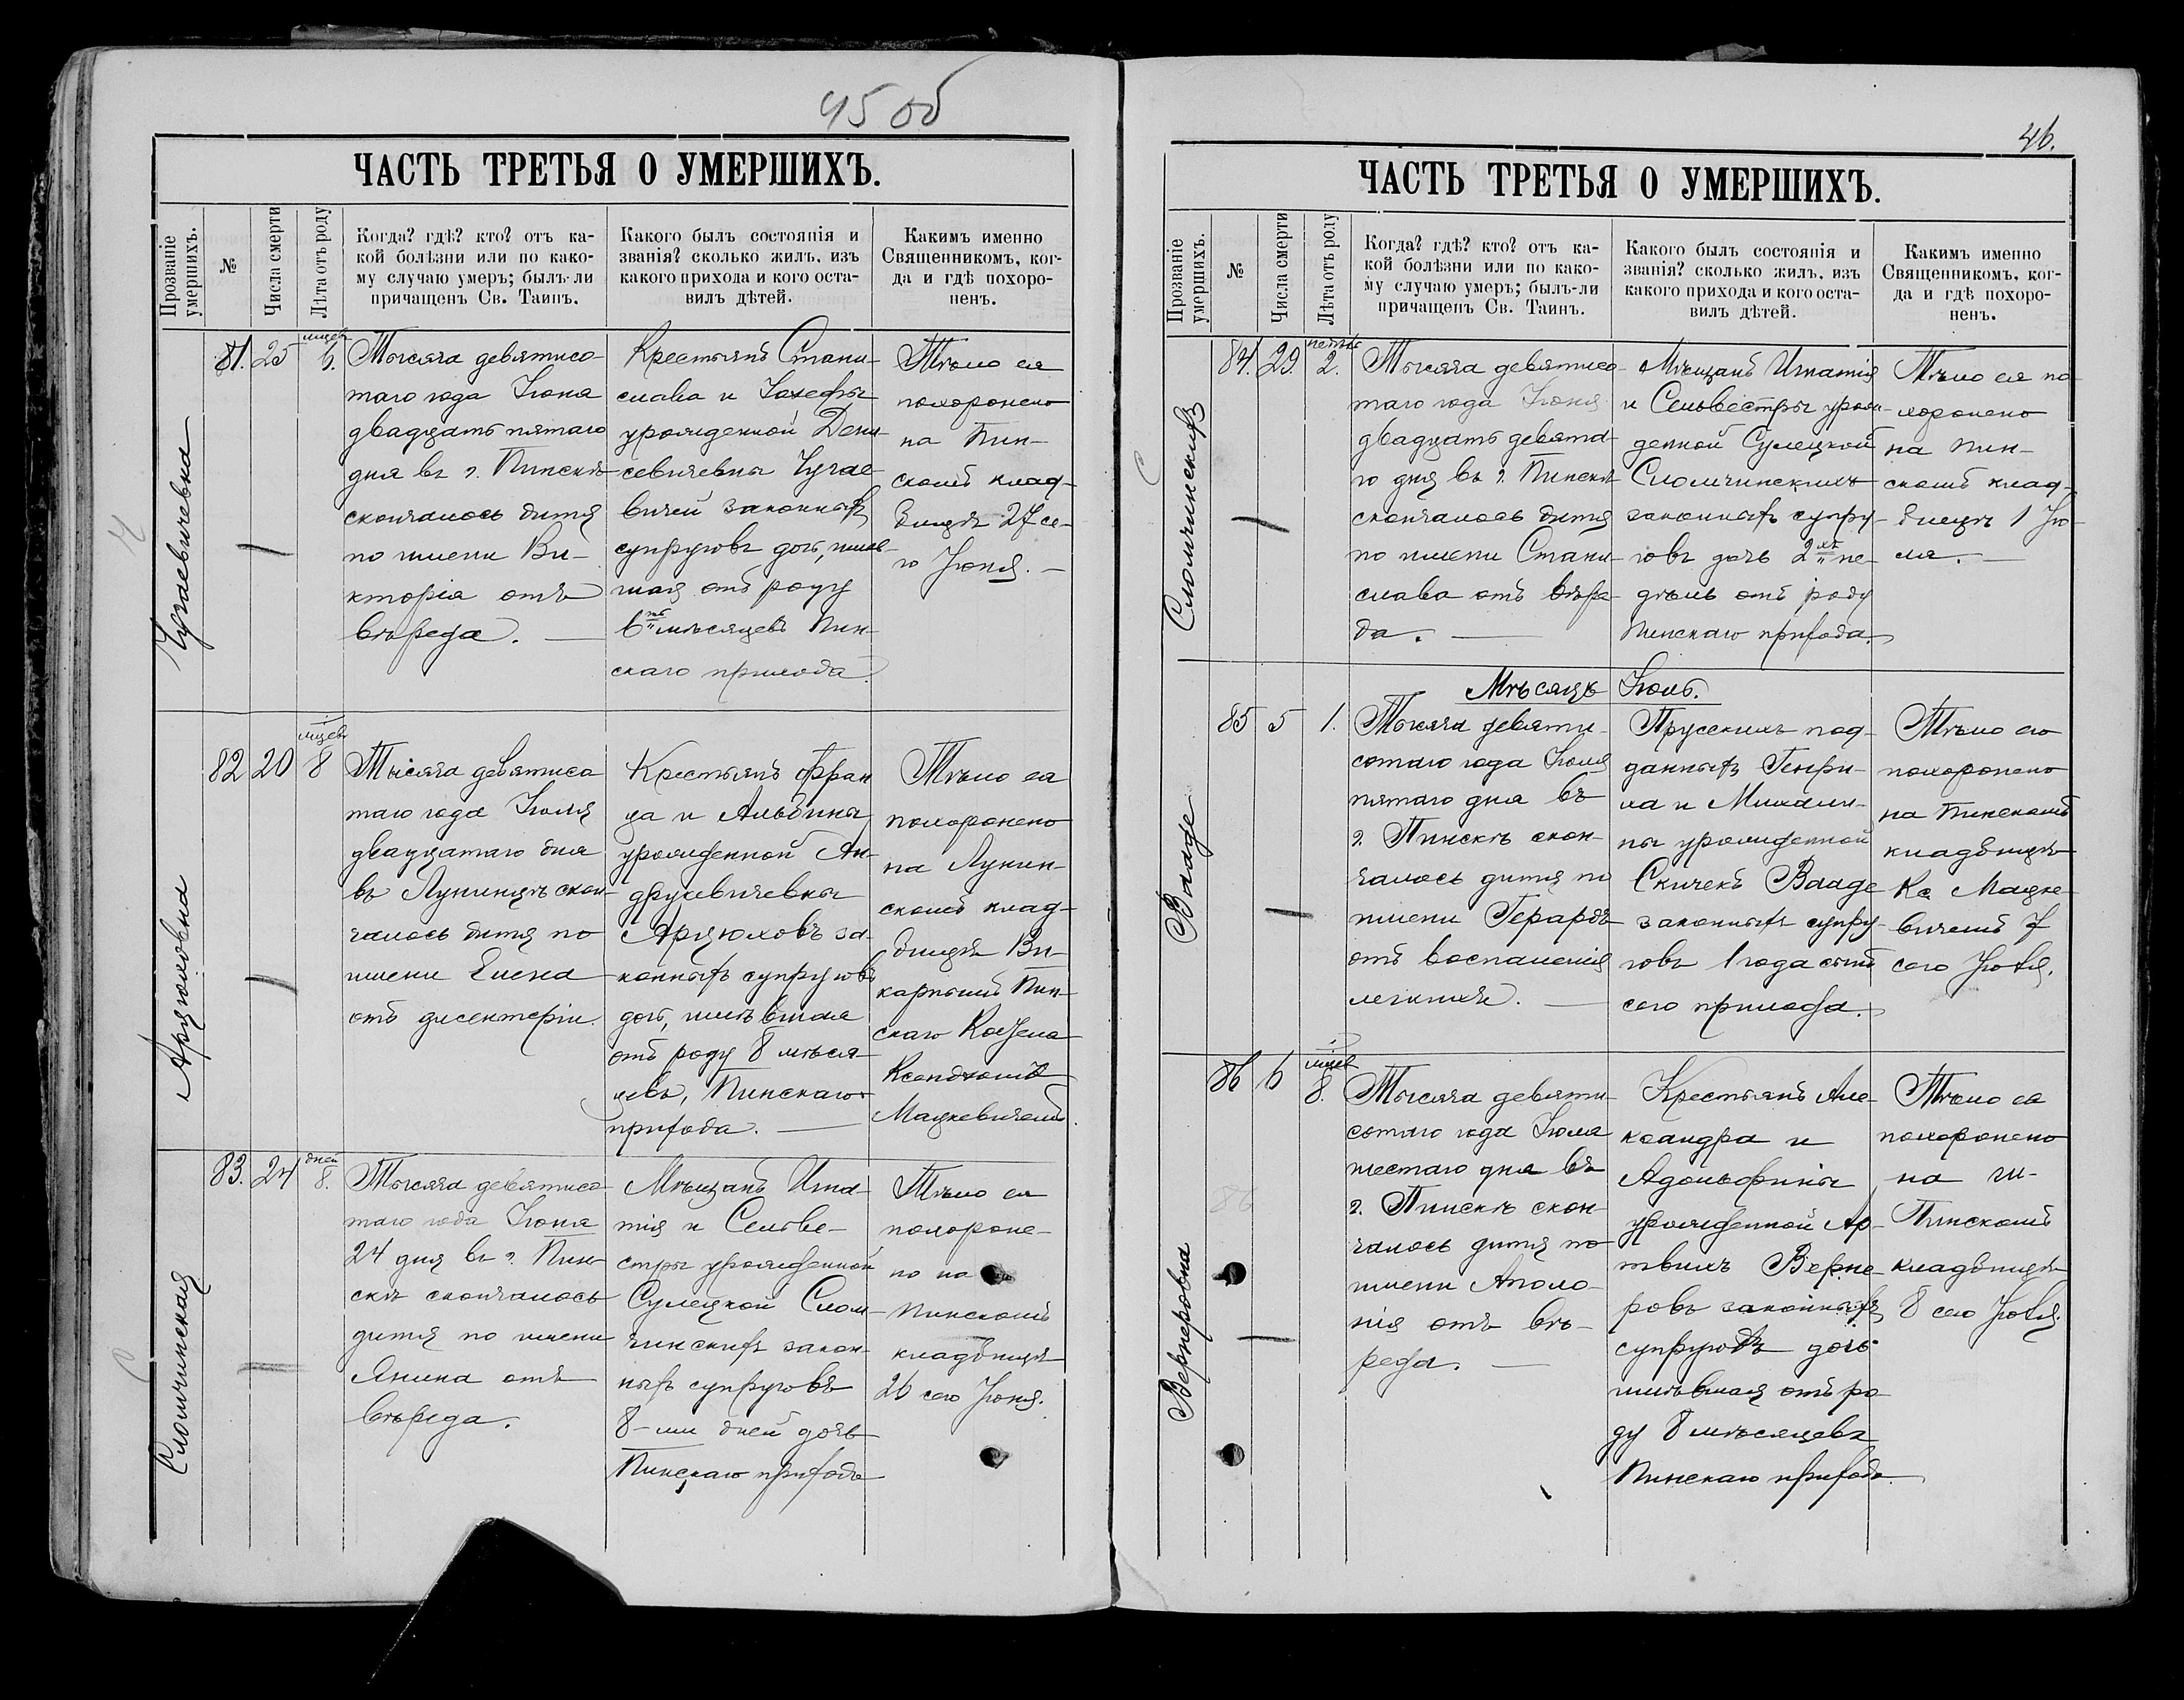 45 об
ЧАСТЬ ТРЕТЬЯ О УМЕРШИХЪ.
Прозваніе умершихъ.
№
Числа смерти
Лѣта отъ роду
Когда? гдѣ? кто? отъ ка-
кой болѣзни или по како-
му случаю умеръ; былъ-ли
причащенъ Св. Таинъ.
Какого былъ состоянія и
званія? сколько жилъ, изъ
какого прихода и кого оста-
вилъ дѣтей.
Какимъ именно
Священникомъ, ког-
да и гдѣ похоро-
ненъ.
Чугаевичевна
81.
25
мцевъ
6.
Тысяча девятисо-
таго года Іюня
двадцать пятаго
дня въ г. Пинскѣ
скончалось дитя
по имени Ви-
кторія отъ
вѣреда.
Крестьянъ Стани-
слава и Іозефы
урожденной Дени-
севичевны Чугае-
вичей законныхъ
супруговъ дочь, имѣв-
шая отъ роду
6ть мѣсяцевъ Пин-
скаго прихода.
Тѣло ея
похоронено
на Пин-
скомъ клад-
бищѣ 27 се-
го Іюня.
Арцюховна
82
20
мцевъ
8
Тысяча девятисо
таго года Іюля
двадцатаго дня
въ Лунинцѣ скон-
чалось дитя по
имени Елена
отъ диссентеріи.
Крестьянъ Фран
ца и Альбины
урожденной Ан-
друсевичевны
Арцюховъ за-
конныхъ супруговъ
дочь, имѣвшая
отъ роду 8 мѣся-
цевъ, Пинскаго
прихода.
Тѣло ея
похоронено
на Лунин-
скомъ клад-
бищѣ Ви-
карнымъ Пин-
скаго Костела
Ксендзомъ
Мацкевичемъ.
Сломчинская
83.
24
дней
8.
Тысяча девятисо
таго года Іюня
24 дня въ г. Пин-
скѣ скончалось
дитя по имени
Янина отъ
вѣреда.
Мѣщанъ Игна-
тія и Сельве-
стры урожденной
Сулецкой Слом-
чинскихъ закон-
ныхъ супруговъ
8-ми дней дочь
Пинскаго прихода
Тѣло ея
похороне-
но на
Пинскомъ
кладбищѣ
26 сего Іюня.
46.
ЧАСТЬ ТРЕТЬЯ О УМЕРШИХЪ.
Прозваніе умершихъ.
№
Числа смерти
Лѣта отъ роду
Когда? гдѣ? кто? отъ ка-
кой болѣзни или по како-
му случаю умеръ; былъ-ли
причащенъ Св. Таинъ.
Какого былъ состоянія и
званія? сколько жилъ, изъ
какого прихода и кого оста-
вилъ дѣтей.
Какимъ именно
Священникомъ, ког-
да и гдѣ похоро-
ненъ.
Сломчинскихъ
84.
29.
2.
Тысяча девятисо-
таго года Іюня
двадцать девята-
го дня въ г. Пинскѣ
скончалось дитя
по имени Стани-
слава отъ вѣре-
да.
Мѣщанъ Игнатія
и Сельвестры урож-
денной Сулецкой
Сломчинскихъ
законныхъ супру-
говъ дочь 2хъ не-
дѣль отъ роду
Пинскаго прихода.
Тѣло ея по-
хоронено
на Пин-
скомъ клад-
бищѣ 1 Ію-
ля.
Мѣсяцъ Іюль.
Вааде
85
5
1.
Тысяча девяти-
сотаго года Іюля
пятаго дня въ
г. Пинскѣ скон-
чалось дитя по
имени Герардъ
отъ воспаленія
легкихъ.
Прусскихъ под-
данныхъ Генри-
ха и Михали-
ны урожденной
Скичекъ Вааде
законныхъ супру-
говъ 1 года сынъ
сего прихода.
Тѣло его
похоронено
на Пинскомъ
кладбищѣ
Кс. Мацке-
вичемъ 7
сего Іюля.
Вернеровна
86
86
6
мцевъ
8.
Тысяча девяти-
сотаго года Іюля
шестаго дня въ
г. Пинскѣ скон-
чалось дитя по
имени Аполо-
нія отъ вѣ-
реда.
Крестьянъ Але-
ксандра и
Адольфины
урожденной Ар-
твихъ Верне-
ровъ законныхъ
супруговъ дочь
имѣвшая отъ ро
ду 8 мѣсяцевъ
Пинскаго прихода.
Тѣло ея
похоронено
на
Пинскомъ
кладбищѣ
8 сего Іюля.